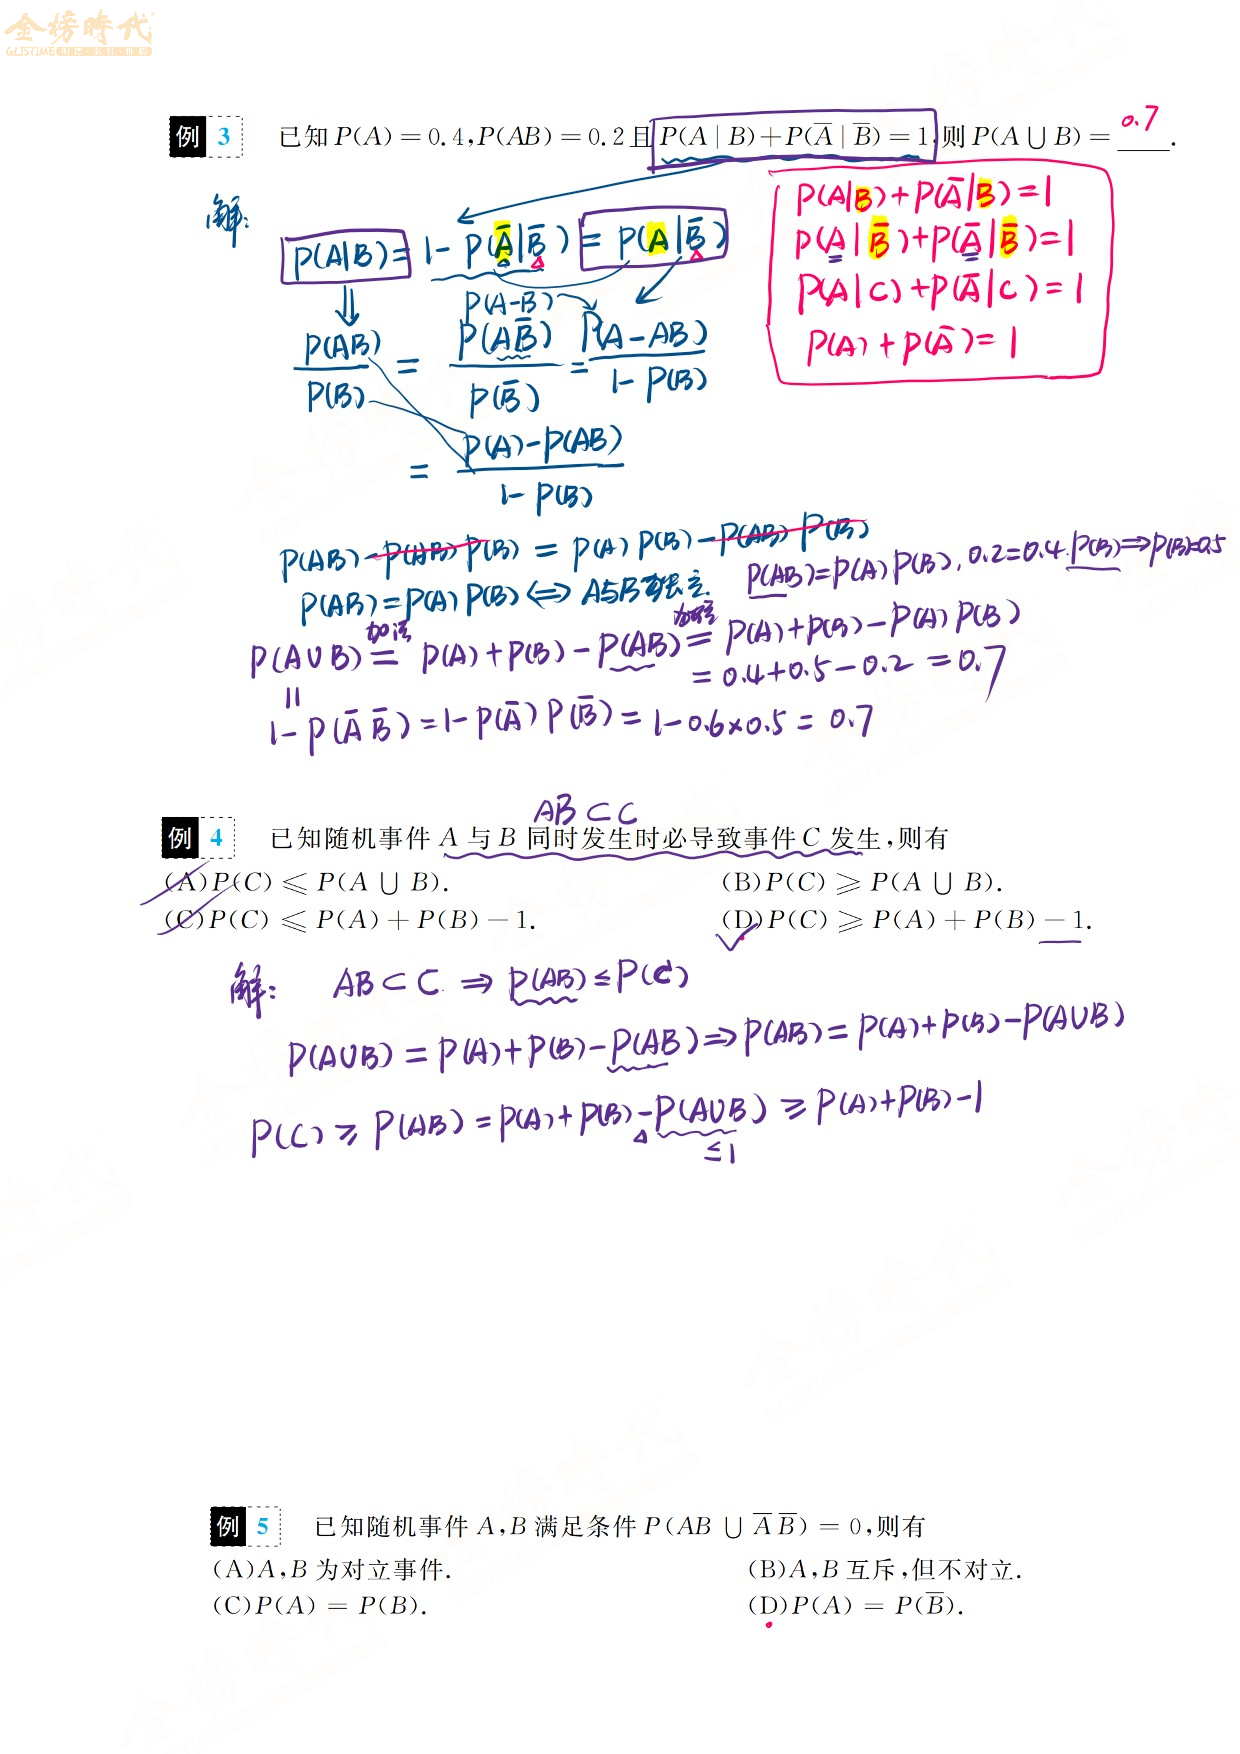 金榜時代
例 3 已知 P(A)=0.4,P(AB)=0.2且 P(A|B)+P(A̅|B̅)=1,则 P(A∪B)= 0.7 .
解:
P(A|B)= 1-P(A̅|B̅)= P(A|B̅)
P(A|B)+P(A̅|B)=1
P(A|B̅)+P(A̅|B̅)=1
P(A|C)+P(A̅|C)=1
P(A)+P(A̅)=1
⇓ P(A-B)
P(AB)/P(B) = P(AB̅)/P(B̅) = P(A-AB)/1-P(B)
= P(A)-P(AB)/1-P(B)
P(AB)-P(AB)P(B) = P(A)P(B)-P(AB)P(B)
P(AB)=P(A)P(B)⇔A与B独立. P(AB)=P(A)P(B), 0.2=0.4·P(B)⇒P(B)=0.5
加法
P(A∪B) = P(A)+P(B)-P(AB) = P(A)+P(B)-P(A)P(B)
= 0.4+0.5-0.2 = 0.7
=
1-P(A̅ B̅)=1-P(A̅)P(B̅)=1-0.6×0.5= 0.7
AB⊂C
例 4 已知随机事件 A 与 B 同时发生时必导致事件 C 发生,则有
(A)P(C) ⩽ P(A ∪ B). (B)P(C) ⩾ P(A ∪ B).
(C)P(C) ⩽ P(A)+P(B)-1. (D)P(C) ⩾ P(A)+P(B)-1.
解: AB⊂C ⇒ P(AB)≤P(C)
P(A∪B) = P(A)+P(B)-P(AB)⇒P(AB)= P(A)+P(B)-P(A∪B)
P(C) ⩾ P(AB) = P(A)+P(B)-P(A∪B) ⩾ P(A)+P(B)-1
≤1
例 5 已知随机事件 A,B 满足条件 P(AB ∪ A̅ B̅) = 0,则有
(A)A,B 为对立事件. (B)A,B 互斥,但不对立.
(C)P(A) = P(B). (D)P(A) = P(B̅).